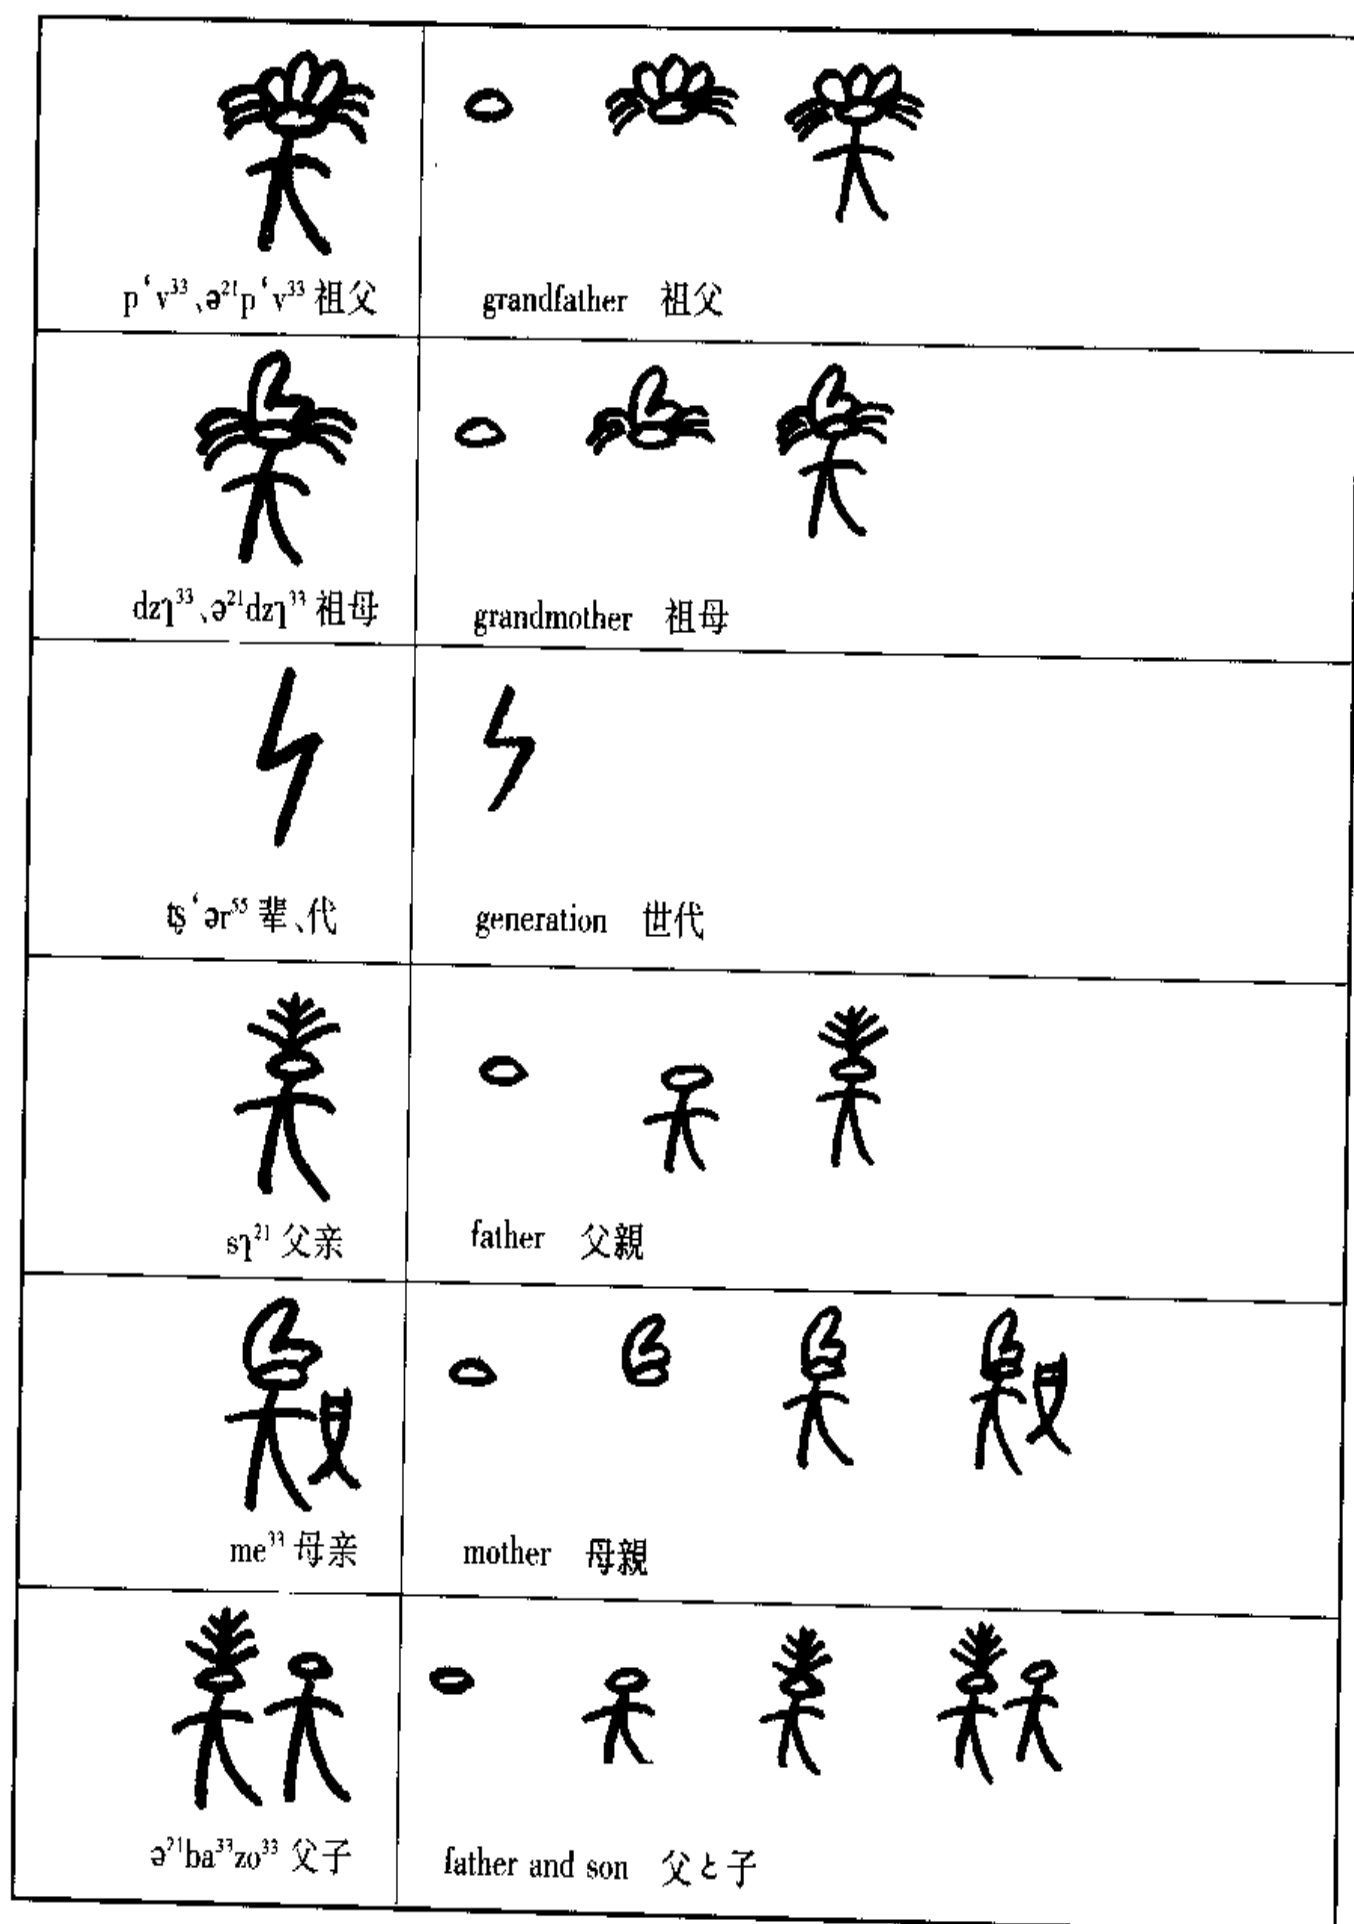 p‘v³³、ə²¹p‘v³³ 祖父
grandfather 祖父
dzɿ³³、ə²¹dzɿ³³ 祖母
grandmother 祖母
tʂ‘ər⁵⁵ 辈、代
generation 世代
sɿ²¹ 父亲
father 父親
me³³ 母亲
mother 母親
ə²¹ba³³zo³³ 父子
father and son 父と子